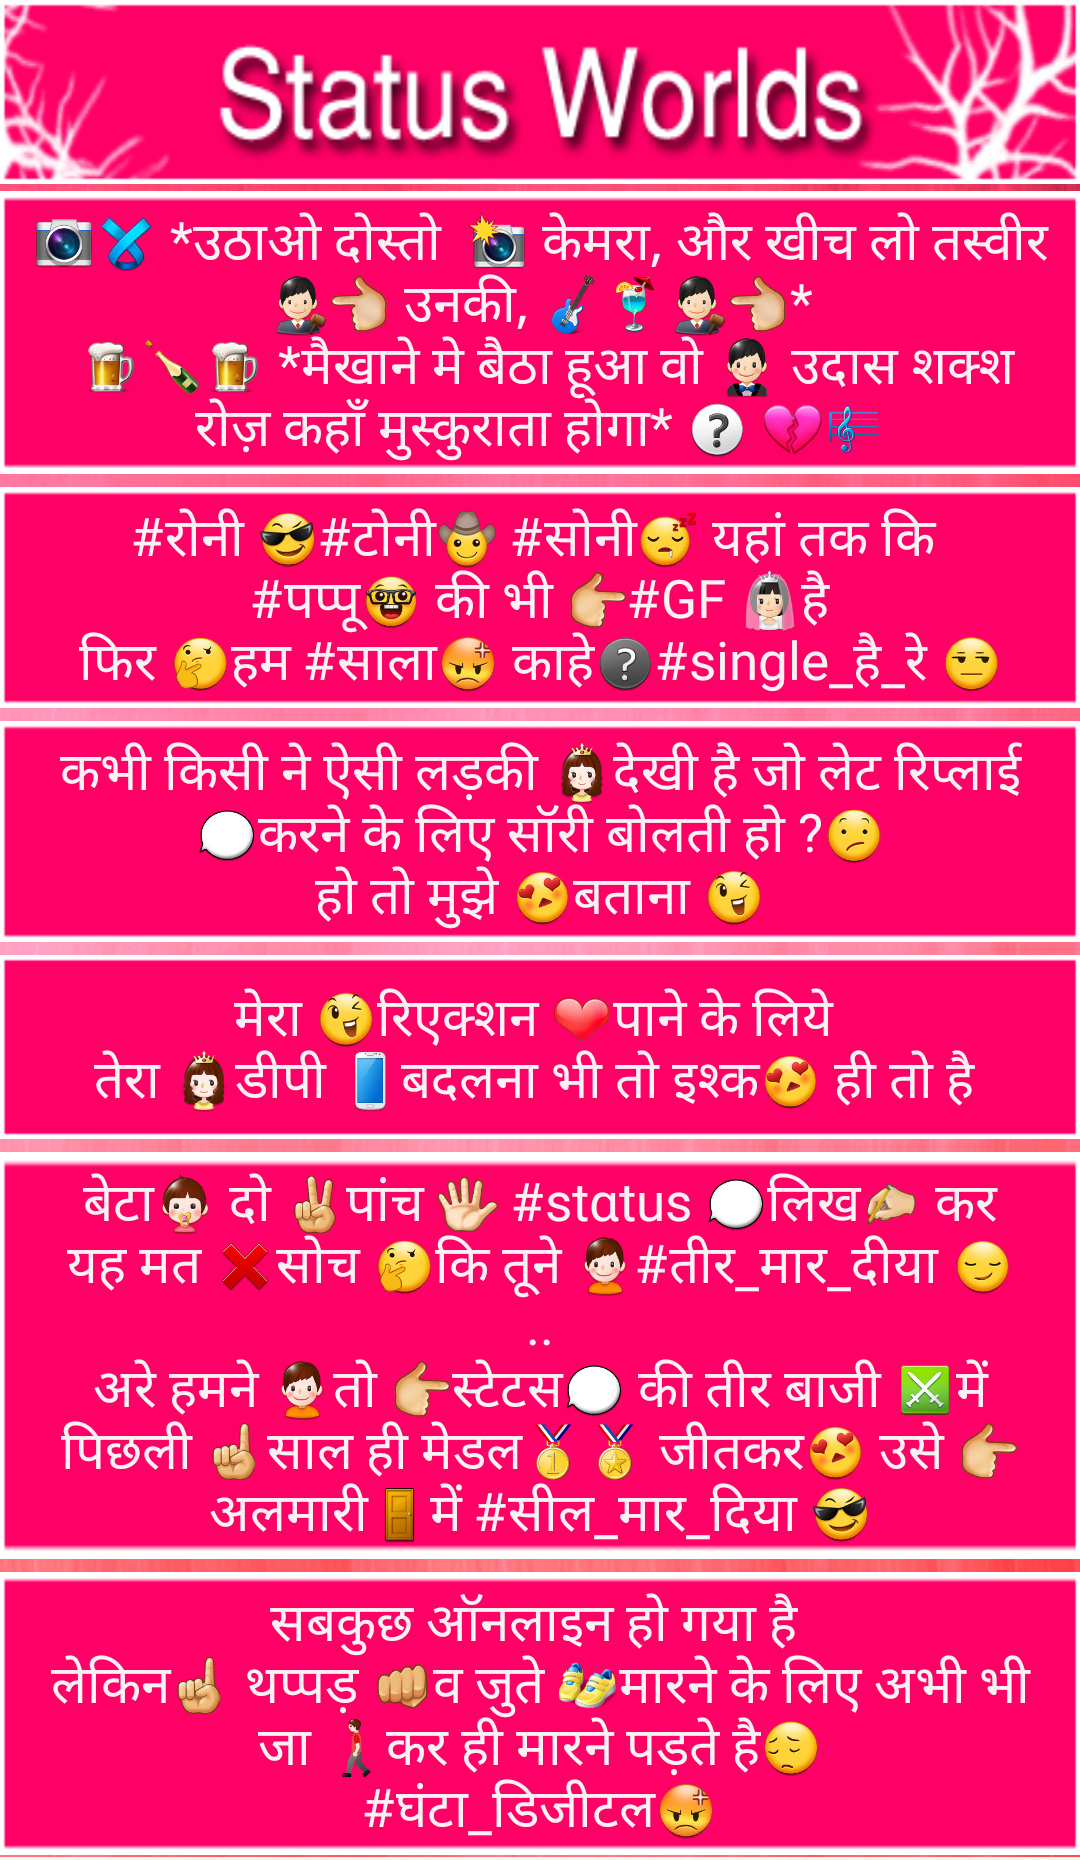 Status Worlds
📷🎗 *उठाओ दोस्तो 📸 केमरा, और खीच लो तस्वीर
👨🏻‍⚖️👈🏼 उनकी, 🎸🍹👨🏻‍⚖️👈🏼*
🍺🍾🍺 *मैखाने मे बैठा हूआ वो 🤵🏻 उदास शक्श
रोज़ कहाँ मुस्कुराता होगा* ❔ 💔🎼
#रोनी 😎#टोनी🤠 #सोनी😴 यहां तक कि
#पप्पू🤓 की भी 👉🏼#GF 👰🏻है
फिर 🤔हम #साला😡 काहे❓#single_है_रे 😒
कभी किसी ने ऐसी लड़की 👸🏻देखी है जो लेट रिप्लाई
💬करने के लिए सॉरी बोलती हो ?😕
हो तो मुझे 😍बताना 😉
मेरा 😉रिएक्शन ❤पाने के लिये
तेरा 👸🏻डीपी 📱बदलना भी तो इश्क😍 ही तो है
बेटा👶🏻 दो ✌🏼पांच 🖐🏼 #stαtus 💬लिख✍🏼 कर
यह मत ❌सोच 🤔कि तूने 🙎🏻‍♂️#तीर_मार_दीया 😏
..
अरे हमने 🙎🏻‍♂️तो 👉🏼स्टेटस💬 की तीर बाजी ⚔में
पिछली ☝🏼साल ही मेडल🥇🏅 जीतकर😍 उसे 👉🏼
अलमारी🚪में #सील_मार_दिया 😎
सबकुछ ऑनलाइन हो गया है
लेकिन☝🏼 थप्पड़ 👊🏼व जुते 👟मारने के लिए अभी भी
जा 🚶🏻कर ही मारने पड़ते है😔
#घंटा_डिजीटल😡